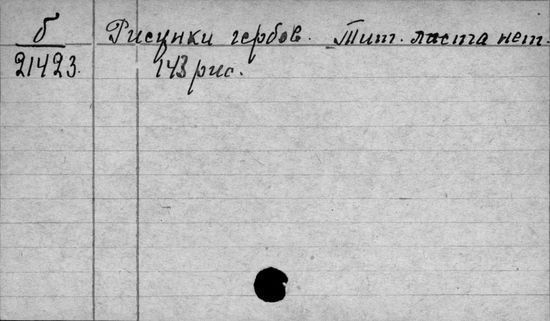 б Рисунки гербов. Тит. листа нет.
21423. 143 рис.